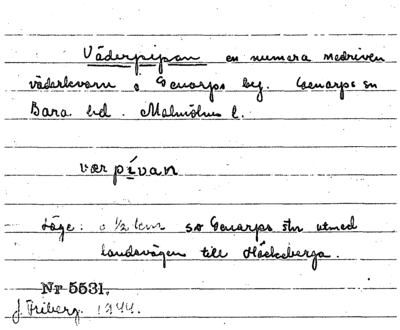 Väderpipan en numera nedriven
väderkvarn i Genarps by. Genarps sn
Bara hd. Malmöhus l.
værpívan
Läge: c ½ km so Genarps stn utmed
landsvägen till Häckeberga.
Nr 5531.
J. Friberg. 1944.